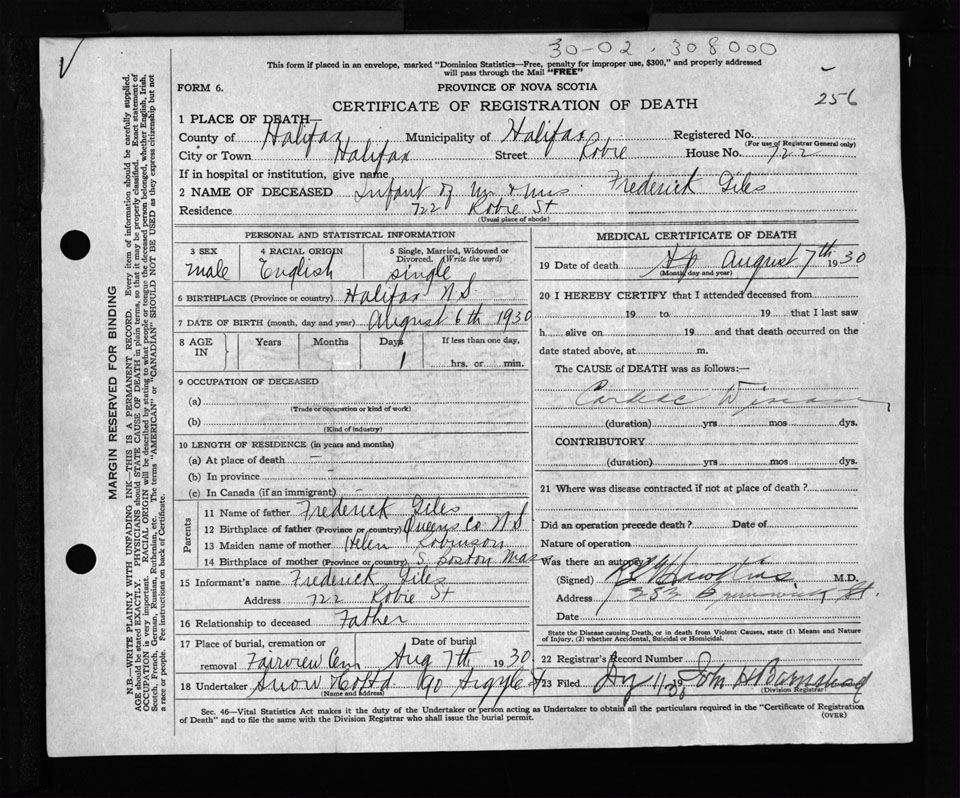 30-02. 308000
This form if placed in an envelope, marked "Dominion Statistics—Free, penalty for improper use, $300," and properly addressed
will pass through the Mail "FREE"
256
FORM 6.
PROVINCE OF NOVA SCOTIA
CERTIFICATE OF REGISTRATION OF DEATH
1 PLACE OF DEATH—
County of Halifax Municipality of Halifax Registered No.
(For use of Registrar General only)
City or Town Halifax Street Robie House No. 722
If in hospital or institution, give name
2 NAME OF DECEASED Infant of Mr & Mrs Frederick Giles
Residence 722 Robie St
(Usual place of abode)
PERSONAL AND STATISTICAL INFORMATION
3 SEX 4 RACIAL ORIGIN 5 Single, Married, Widowed or
Divorced. (Write the word)
male English single
6 BIRTHPLACE (Province or country) Halifax N.S.
7 DATE OF BIRTH (month, day and year) August 6th 1930
8 AGE IN Years Months Days If less than one day,
1 hrs. or min.
9 OCCUPATION OF DECEASED
(a)
(Trade or occupation or kind of work)
(b)
(Kind of industry)
10 LENGTH OF RESIDENCE (in years and months)
(a) At place of death —
(b) In province -
(c) In Canada (if an immigrant) -
Parents
11 Name of father Frederick Giles
12 Birthplace of father (Province or country) Queens Co N S
13 Maiden name of mother Helen Robinson
14 Birthplace of mother (Province or country) S. Boston Mass
15 Informant's name Frederick Giles
Address 722 Robie St
16 Relationship to deceased Father
17 Place of burial, cremation or Date of burial
removal Fairview Cem Aug 7th 1930
18 Undertaker Snow & Co Ltd 90 Argyle St
(Name and address)
MEDICAL CERTIFICATE OF DEATH
19 Date of death August 7th 1930
(Month, day and year)
20 I HEREBY CERTIFY that I attended deceased from
19 to 19 that I last saw
h alive on 19 and that death occurred on the
date stated above, at m.
The CAUSE of DEATH was as follows:—
Cardiac Disease
(duration) yrs mos dys.
CONTRIBUTORY
(duration) yrs mos dys.
21 Where was disease contracted if not at place of death?
Did an operation precede death? Date of
Nature of operation
Was there an autopsy?
(Signed) Hawkins M.D.
Address 383 Brunswick St.
Date
State the Disease causing Death, or in death from Violent Causes, state (1) Means and Nature
of Injury, (2) whether Accidental, Suicidal or Homicidal.
22 Registrar's Record Number
23 Filed 11 1930 John H Barnstead
(Division Registrar)
Sec. 46—Vital Statistics Act makes it the duty of the Undertaker or person acting as Undertaker to obtain all the particulars required in the "Certificate of Registration
of Death" and to file the same with the Division Registrar who shall issue the burial permit.
(OVER)
MARGIN RESERVED FOR BINDING
N.B.—WRITE PLAINLY WITH UNFADING INK—THIS IS A PERMANENT RECORD. Every item of information should be carefully supplied.
AGE should be stated EXACTLY. PHYSICIANS should STATE CAUSE OF DEATH in plain terms, so that it may be properly classified. Exact statement of
OCCUPATION is very important. RACIAL ORIGIN will be described by stating to what people or tongue the deceased person belonged, whether English, Irish,
Scotch, French, German, Russian, Ruthenian, etc. The terms "AMERICAN" or "CANADIAN" SHOULD NOT BE USED as they express citizenship but not
a race or people. Fee instructions on back of Certificate.